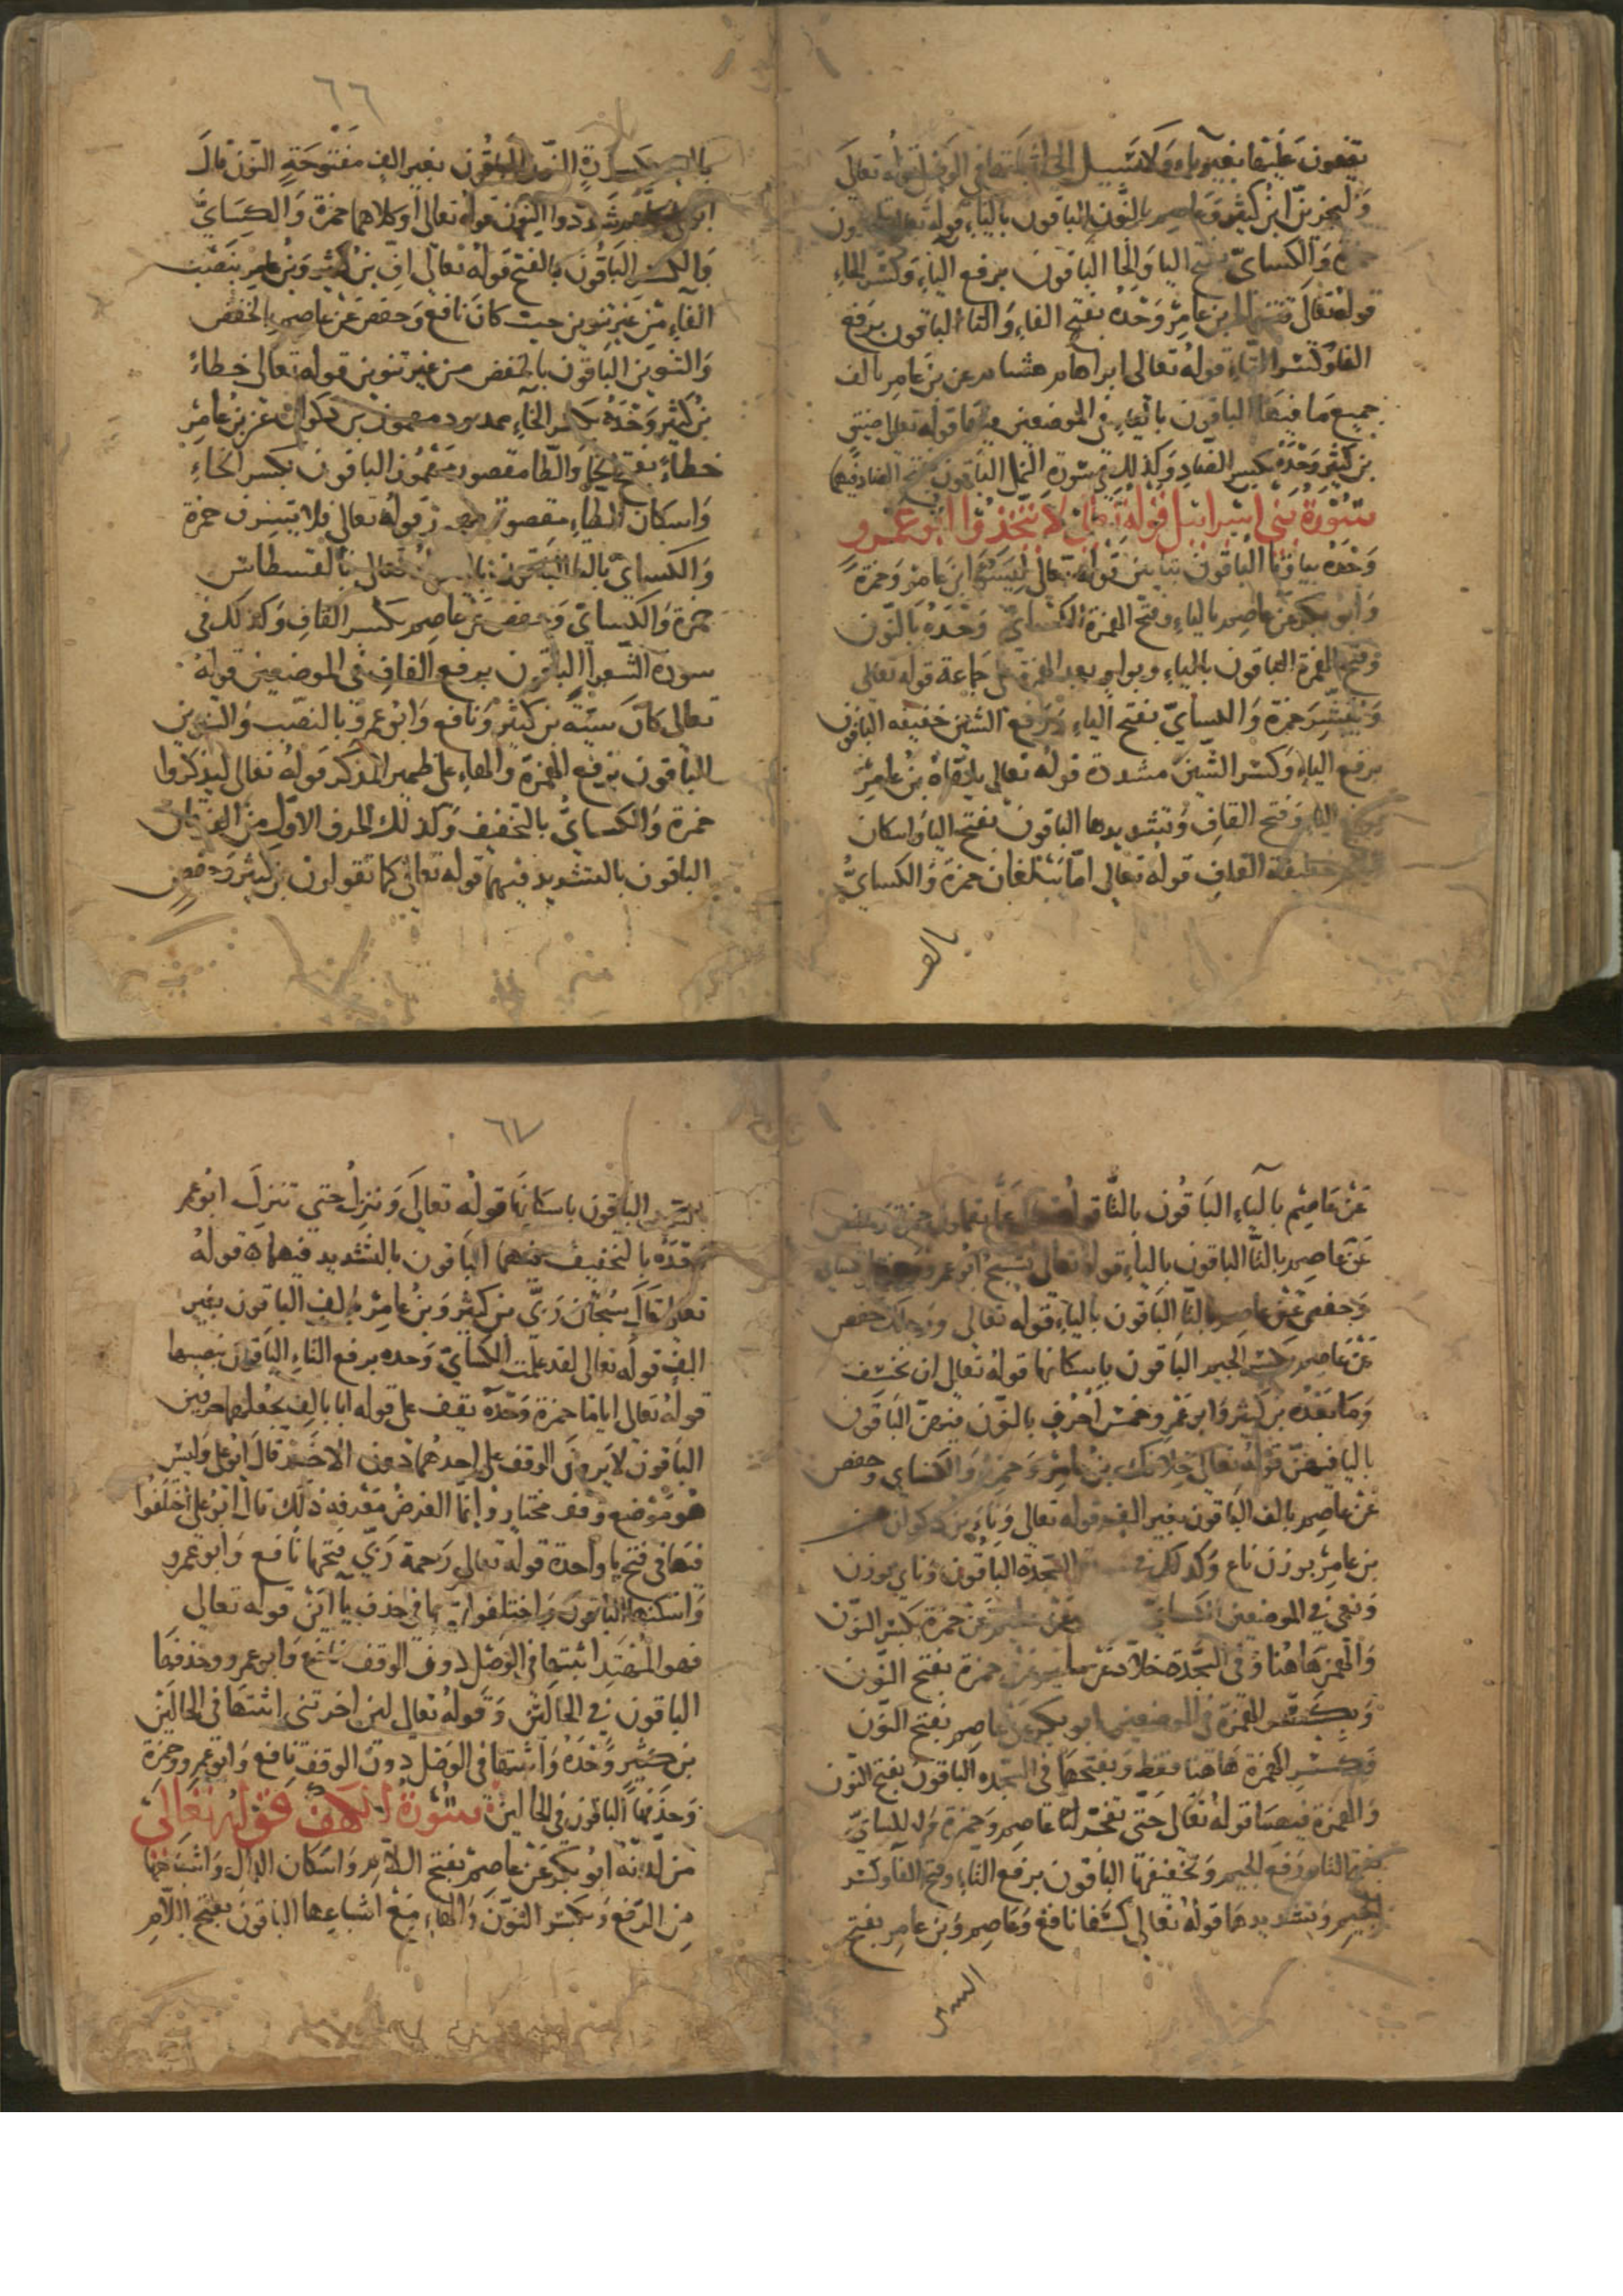 يقفون عليها بغير ياء ولا سبيل الى اثباتها في الوصل قوله تعالى
وليجزين ابن كثير وعاصم بالنون الباقون بالياء قوله تعالى
حمزة والكسايّ بفتح اليا والحا الباقون برفع الياء وكسر الحاء
قوله تعالى فتنوا بن عامر وحده بفتح الفاء والتا الباقون برفع
الفا وكسر التاء قوله تعالى ابراهام هشام عن بن عامر بالف
جميع ما فيها الباقون بالياء في الموضعين فيها قوله تعلى ضيق
بن كثير وحده بكسر الضاد وكذلك في سورة النمل الباقون بفتح الضاد فيهما
سورة بني اسرائيل قوله تعالى لا تتخذوا ابو عمرو
وحده بيا وتا الباقون بتايين قوله تعالى ليسوء ابن عامر وحمزة
وابو بكر عن عاصم بالياء وفتح الهمزة الكسايّ وحده بالنون
وفتح الهمزة الباقون بالياء وبواو بعد الهمزة على جماعة قوله تعالى
ويبشر حمزة والكسايّ بفتح الياء ورفع الشين خفيفه الباقون
برفع الياء وكسر الشين مشددة قوله تعالى يلقاه بن عامر
برفع الياء وفتح القاف وتشديدها الباقون بفتح اليا واسكان
اللام خفيفة القاف قوله تعالى امّا يبلغان حمزة والكسايّ
بالف
٦٦
بالف مكسورة النون الباقون بغير الف مفتوحة النون قال
ابو علي شددوا النون قوله تعالى او كلاهما حمزة والكسايّ
بالكسر الباقون بالفتح قوله تعالى افّ بن كثير وبن عامر بنصب
الفاء من غير تنوين حيث كان نافع وحفص عن عاصم بالخفض
والتنوين الباقون بالخفض من غير تنوين قوله تعالى خطاءً
بن كثير وحده بكسر الخاء ممدود مهموز بن ذكوان عن بن عامر
خطاءً بفتح الخا والطا مقصور مهموز الباقون بكسر الخاء
واسكان الطاء مقصور مهموز قوله تعالى فلا تسرف حمزة
والكسايّ بالتا الباقون بالياء قوله تعالى بالقسطاس
حمزة والكسايّ وحفص عن عاصم بكسر القاف وكذلك في
سورة الشّعرا الباقون برفع القاف في الموضعين قوله
تعالى كان سيّئة بن كثير ونافع وابو عمرو بالنصب والتنوين
الباقون برفع الهمزة والهاء على ضمير المذكر قوله تعالى ليذكروا
حمزة والكسايّ بالتخفيف وكذلك الحرف الاوّل من الفرقان
الباقون بالتشديد فيهما قوله تعالى كما تقولون بن كثير وحفص
عن عاصم بالياء الباقون بالتا قوله تعالى عمّا تقولون حمزة
عن عاصم بالتا الباقون بالياء قوله تعالى تسبح ابو عمرو وحمزة والكسايّ
وحفص عن عاصم بالتا الباقون بالياء قوله تعالى ورجلك حفص
عن عاصم بكسر الجيم الباقون باسكانها قوله تعالى ان نخسف
وما بعده بن كثير وابو عمرو خمس احرف بالنون فيهنّ الباقون
باليا فيهنّ قوله تعالى خلافك بن عامر وحمزة والكساي وحفص
عن عاصم بالف الباقون بغير الف قوله تعالى وناء بن ذكوان عن
بن عامر بوزن ناع وكذلك في السّجدة الباقون ونأى بوزن
ونعى في الموضعين الكسايّ وعن سليم عن حمزة بكسر النّون
والهمز هاهنا وفي السّجدة خلاد عن سليم عن حمزة بفتح النّون
وبكسر الهمزة في الموضعين ابو بكر عن عاصم بفتح النّون
وكسر الهمزة هاهنا فقط وبفتحها في السّجده الباقون بفتح النّون
والهمزة فيهما قوله تعالى حتّى تفجر لنا عاصم وحمزة والكسايّ
بفتح التا ورفع الجيم وتخفيفها الباقون برفع التاء وفتح الفا وكسر
الجيم وتشديدها قوله تعالى كسفا نافع وعاصم وبن عامر بفتح
السين
٦٧
السّين الباقون باسكانها قوله تعالى وننزل حتى تنزل ابو عمرو
وحده بالتخفيف فيهما الباقون بالتشديد فيهما قوله
تعالى قال سبحان ربّي بن كثير وبن عامر بالف الباقون بغير
الف قوله تعالى لقد علمت الكسايّ وحده برفع التاء الباقون بنصبها
قوله تعالى اياما حمزة وحده يقف على قوله ايا بالف يجعلهما حرفين
الباقون لا يرون الوقف على احدهما دون الاخر قال ابو علي وليس
هو موضع وقف مختار وانما الغرض معرفه ذلك قال ابو علي اختلفوا
فيها في فتح يا واحدة قوله تعالى رحمة ربّي فتحها نافع وابو عمرو
واسكنها الباقون واختلفوا فيها في حذف يا اثنين قوله تعالى
فهو المهتد اثبتها في الوصل دون الوقف نافع وابو عمرو وحذفها
الباقون في الحالين وقوله تعالى لين اخرتني اثبتها في الحالين
بن كثير وحده واثبتها في الوصل دون الوقف نافع وابو عمرو وحمزة
وحذفها الباقون في الحالين سورة الكهف قوله تعالى
من لدنه ابو بكر عن عاصم بفتح اللام واسكان الدال واشباعها
من الرفع وبكسر النّون والهاء مع اشباعها الباقون بفتح اللام